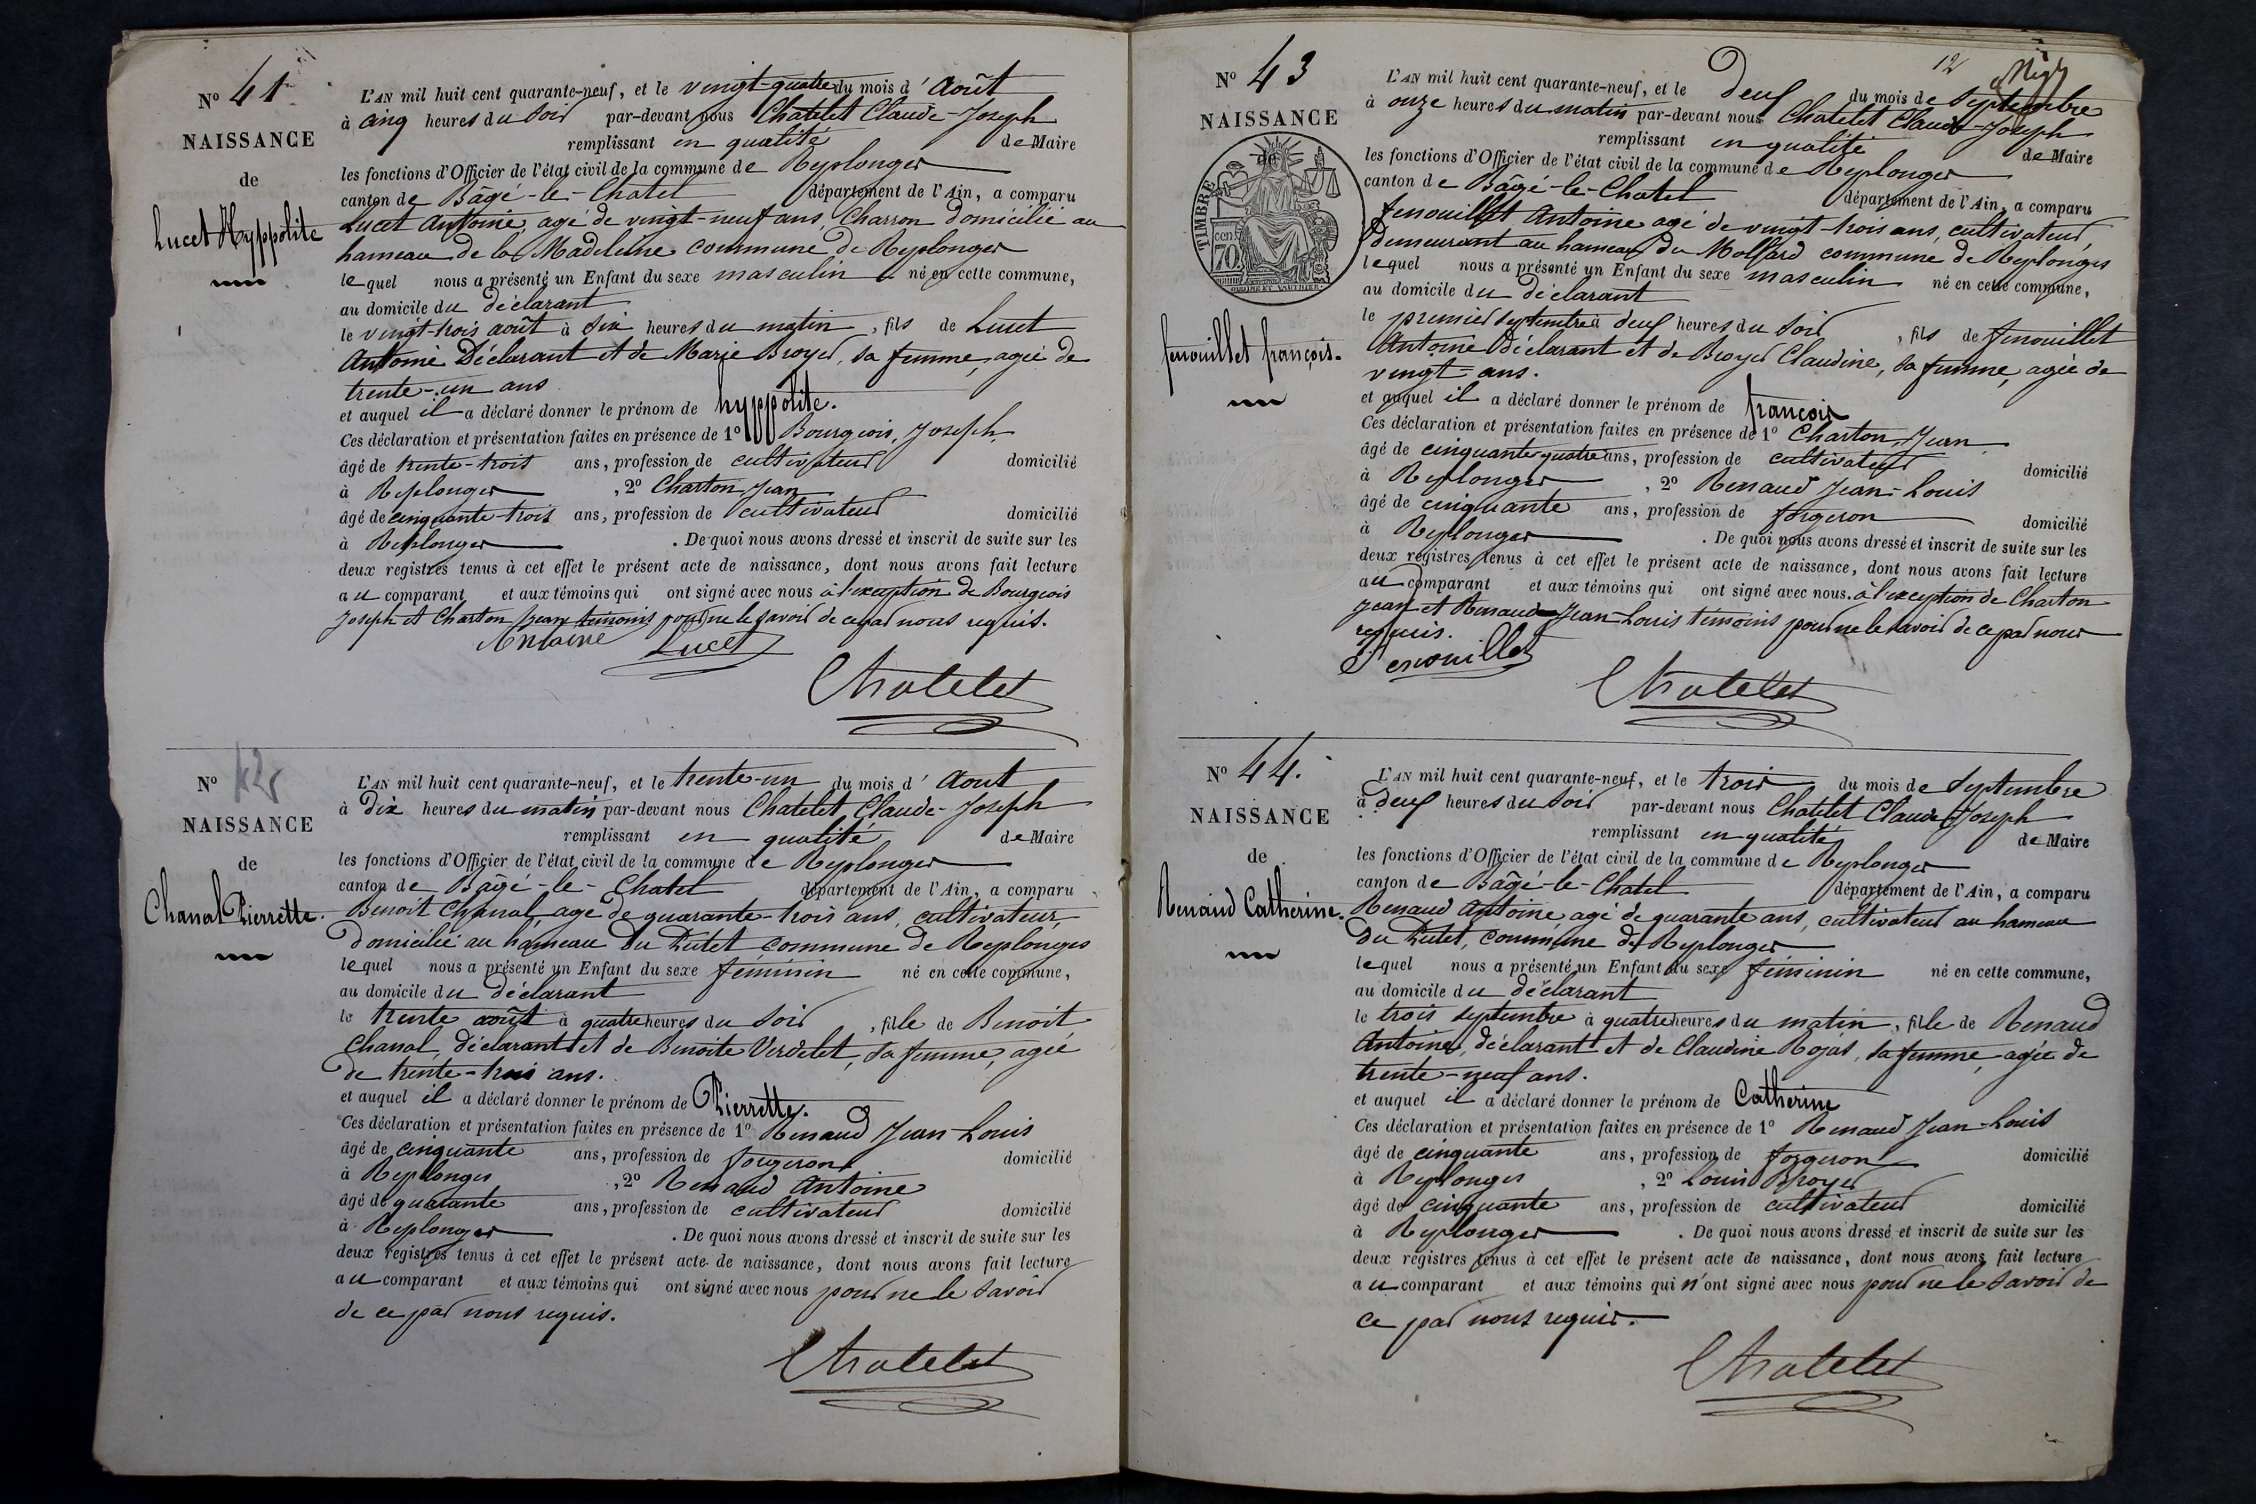 N° 41
NAISSANCE
de
Lucet Hyppolite
L'AN mil huit cent quarante-neuf, et le vingt-quatre du mois d' Août
à cinq heures du soir par-devant nous Chatelet Claude-Joseph
remplissant en qualité de Maire
les fonctions d'Officier de l'état civil de la commune de Replonges
canton de Bâgé-le-Chatel département de l'Ain, a comparu
Lucet Antoine, agé de vingt-neuf ans, Charron domicilié au
hameau de la Madeleine commune de Replonges
lequel nous a présenté un Enfant du sexe masculin né en cette commune,
au domicile du déclarant
le vingt-trois août à six heures du matin, fils de Lucet
Antoine Déclarant et de Marie Broyer, sa femme, agée de
trente-un ans
et auquel il a déclaré donner le prénom de hyppolite.
Ces déclaration et présentation faites en présence de 1° Bourgeois, Joseph
âgé de trente-trois ans, profession de cultivateur domicilié
à Replonges, 2° Charton Jean
âgé de cinquante-trois ans, profession de cultivateur domicilié
à Replonges. De quoi nous avons dressé et inscrit de suite sur les
deux registres tenus à cet effet le présent acte de naissance, dont nous avons fait lecture
au comparant et aux témoins qui ont signé avec nous à l'exception de Bourgeois
Joseph et Charton Jean témoins pour ne le savoir de ce par nous requis.
Antoine Lucet
Chatelet
N° 42
NAISSANCE
de
Chanal Pierrette.
L'AN mil huit cent quarante-neuf, et le trente-un du mois d' Aout
à Dix heures du matin par-devant nous Chatelet Claude-Joseph
remplissant en qualité de Maire
les fonctions d'Officier de l'état civil de la commune de Replonges
canton de Bâgé-le-Chatel département de l'Ain, a comparu
Benoit Chanal, agé de quarante-trois ans, cultivateur,
domicilié au hameau du Dutet commune de Replonges
lequel nous a présenté un Enfant du sexe féminin né en cette commune,
au domicile du déclarant
le trente août à quatre heures du soir, fille de Benoit
Chanal, déclarant et de Benoite Verdelet, sa femme, agée
de trente-trois ans.
et auquel il a déclaré donner le prénom de Pierrette.
Ces déclaration et présentation faites en présence de 1° Renaud Jean-Louis
âgé de cinquante ans, profession de forgeron domicilié
à Replonges, 2° Renaud Antoine
âgé de quarante ans, profession de cultivateur domicilié
à Replonges. De quoi nous avons dressé et inscrit de suite sur les
deux registres tenus à cet effet le présent acte de naissance, dont nous avons fait lecture
au comparant et aux témoins qui ont signé avec nous pour ne le savoir
de ce par nous requis.
Chatelet
12
N° 43
NAISSANCE
de
TIMBRE
70 cent
fenouillet françois.
L'AN mil huit cent quarante-neuf, et le Deux du mois de Septembre
à onze heures du matin par-devant nous Chatelet Claude-Joseph
remplissant en qualité de Maire
les fonctions d'Officier de l'état civil de la commune de Replonges
canton de Bâgé-le-Chatel département de l'Ain, a comparu
fenouillet Antoine agé de vingt-trois ans, cultivateur,
Demeurant au hameau du Molfard commune de Replonges
lequel nous a présenté un Enfant du sexe masculin né en cette commune,
au domicile du déclarant
le premier septembre à deux heures du soir, fils de fenouillet
Antoine Déclarant et de Broyer Claudine, sa femme, agée de
vingt-ans.
et auquel il a déclaré donner le prénom de françois
Ces déclaration et présentation faites en présence de 1° Charton, Jean
âgé de cinquante-quatre ans, profession de cultivateur domicilié
à Replonges, 2° Renaud Jean-Louis
âgé de cinquante ans, profession de forgeron domicilié
à Replonges. De quoi nous avons dressé et inscrit de suite sur les
deux registres tenus à cet effet le présent acte de naissance, dont nous avons fait lecture
au comparant et aux témoins qui ont signé avec nous, à l'exception de Charton
Jean et Renaud Jean-Louis témoins pour ne le savoir de ce par nous
requis.
Fenouillet
Chatelet
N° 44.
NAISSANCE
de
Renaud Catherine.
L'AN mil huit cent quarante-neuf, et le trois du mois de Septembre
à deux heures du soir par-devant nous Chatelet Claude Joseph
remplissant en qualité de Maire
les fonctions d'Officier de l'état civil de la commune de Replonges
canton de Bâgé-le-Chatel département de l'Ain, a comparu
Renaud Antoine agé de quarante ans, cultivateur au hameau
du Dutet, commune de Replonges
lequel nous a présenté un Enfant du sexe féminin né en cette commune,
au domicile du déclarant
le trois septembre à quatre heures du matin, fille de Renaud
Antoine, déclarant et de Claudine Rojas, sa femme, agée de
trente-neuf ans.
et auquel il a déclaré donner le prénom de Catherine
Ces déclaration et présentation faites en présence de 1° Renaud Jean-Louis
âgé de cinquante ans, profession de forgeron domicilié
à Replonges, 2° Louis Broyer
âgé de cinquante ans, profession de cultivateur domicilié
à Replonges. De quoi nous avons dressé et inscrit de suite sur les
deux registres tenus à cet effet le présent acte de naissance, dont nous avons fait lecture
au comparant et aux témoins qui n'ont signé avec nous pour ne le savoir de
ce par nous requis.
Chatelet